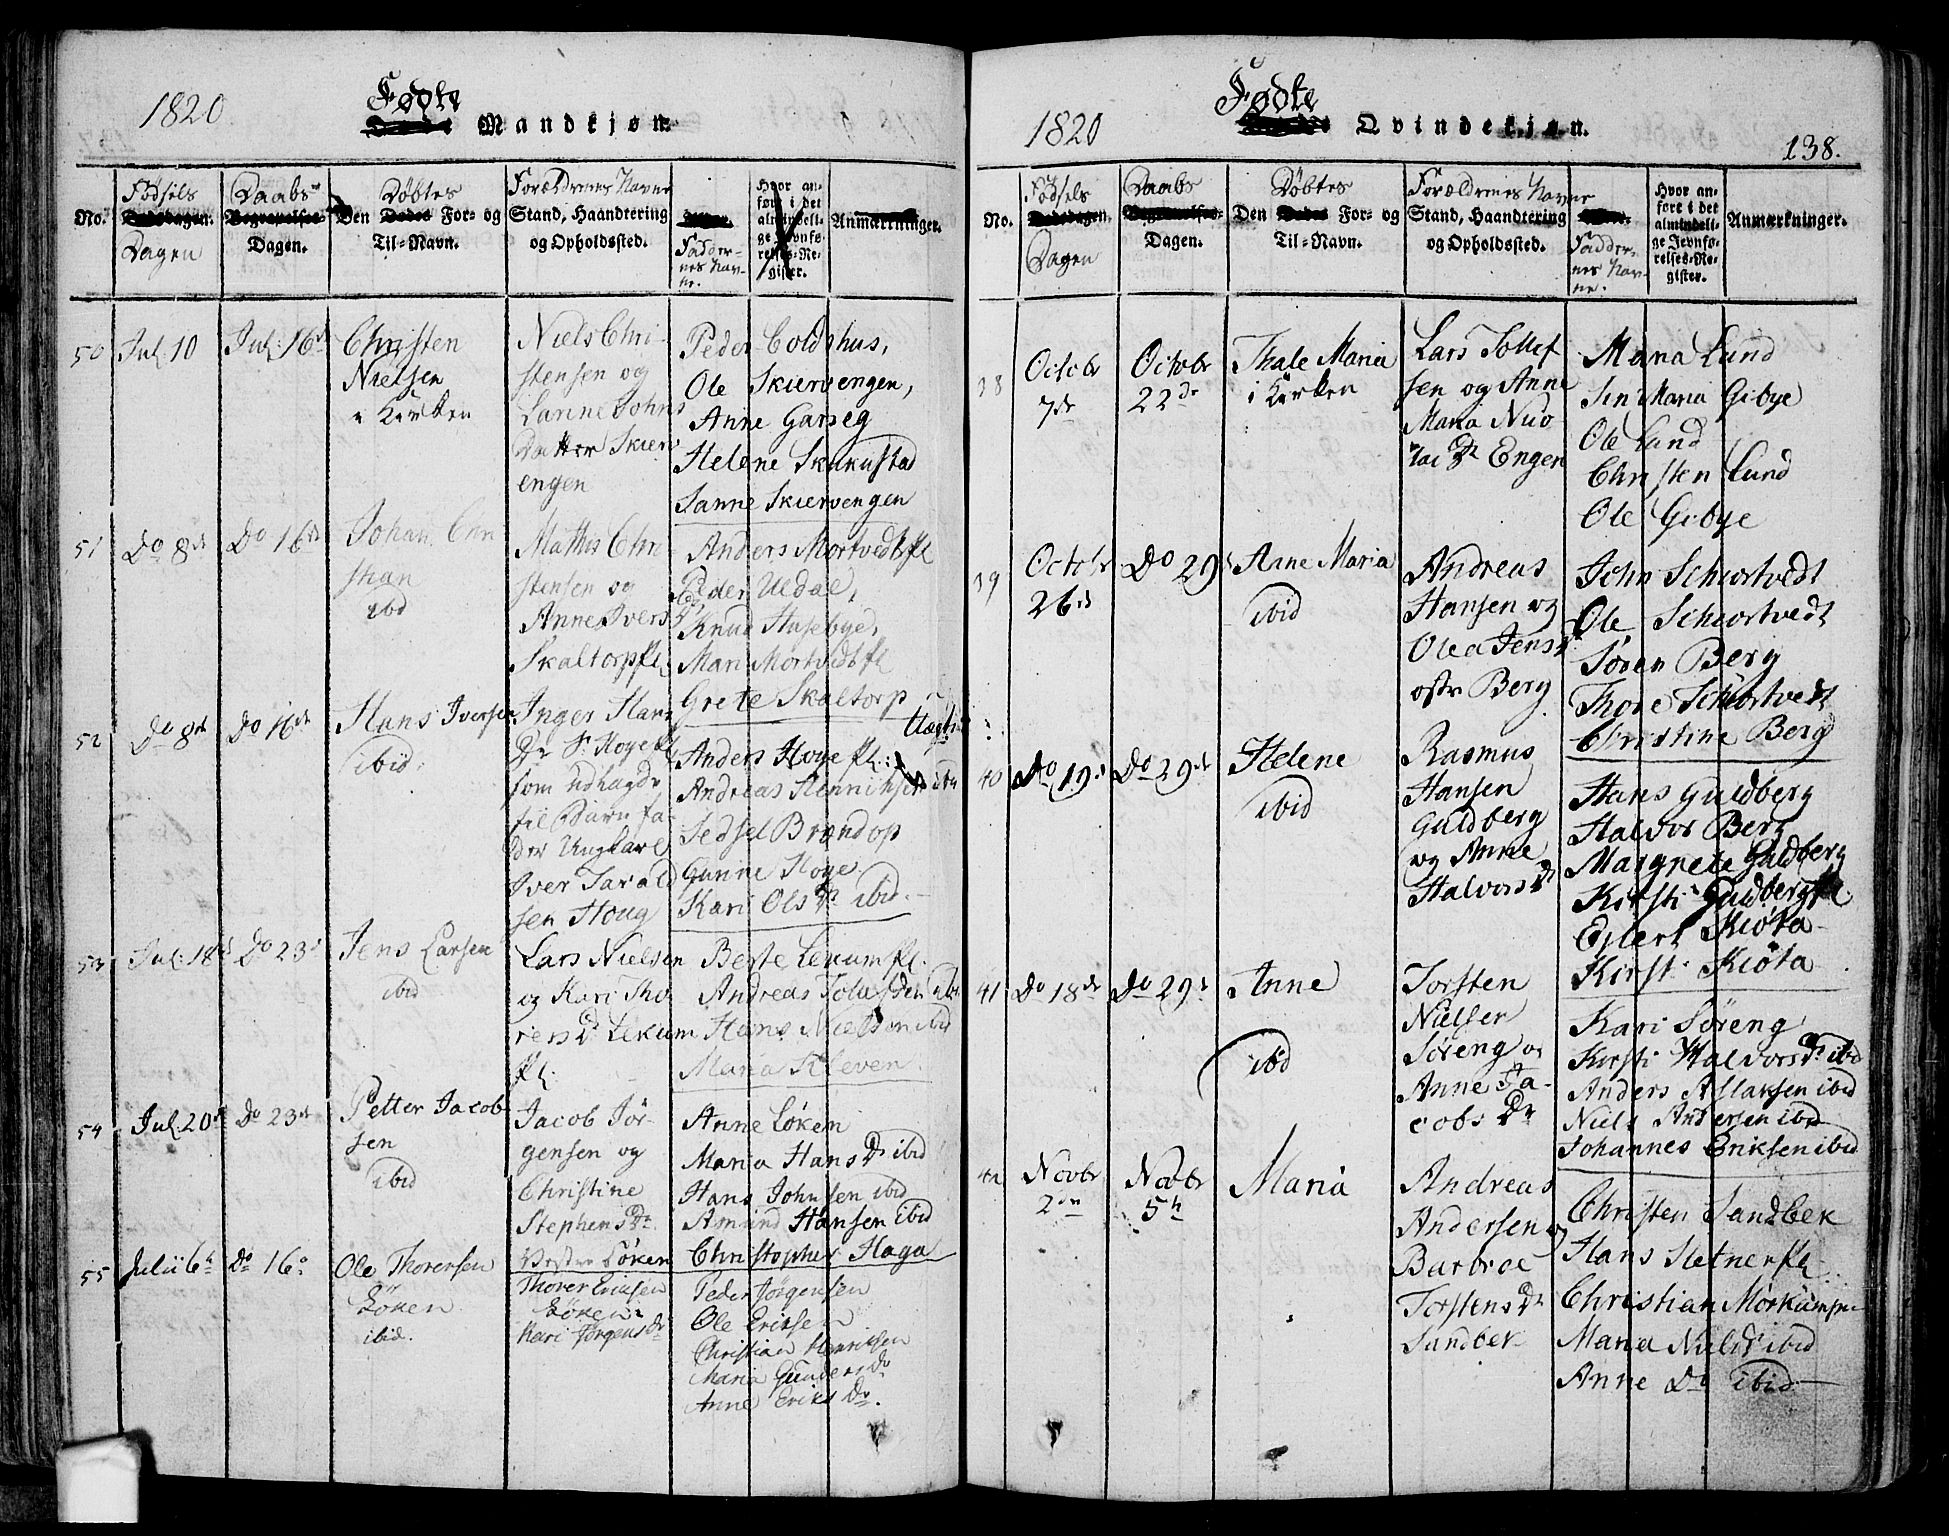 1820
Fødte
Mandkjøn.
No.
Fødsels
Dagen
Daabs
Dagen.
Den Døbtes For- og
Til-Navn.
Forældrenes Navne
Stand, Haandtering
og Opholdssted.
Fadder-
nes Nav-
ne.
Hvor an-
ført i det
almindeli-
ge Jevnfø-
relses-Re-
gister.
Anmærkninger.
50
Jul. 10
Jul. 16d
Christen
Nielsen
i Kirken
Niels Chri-
stensen og
Datter Skierv
engen
Ole Skiervengen,
Anne Garseg
Helene
Sanne Skiervengen
51
Do 8de
Do 16de
Johan Chri
stian
ibid
Mathis Chri-
stensen og
Anne Ivers
Skaltorpfl.
Anders Mortvedtfl
Peder Uldal,
Knud Husebye,
Mari Mortvedtfl
Grete Skaltorp
52
Do 8de
Do 16de
Hans Iversen
ibid.
Inger Hans
som udlagde
til Barnfa-
der Ungkarl
Iver Tarald
sen Houg
Anders Hoye fl.
Andreas Henriksen ibid
Sedsel Brandop
Gunne Hoye
Kari Ols Dr ibid.
53
Jul: 18de
Do 23d
Jens Larsen
ibid
Lars Nielsen
og Kari Tho
rers Dr Lekum
fl.
Berte Lekumfl.
Andreas
Hans Nielsen ibid
Maria Kleven
54
Jul. 20d
Do 23de
Petter Jacob
sen
ibid
Jacob Jör-
gensen og
Christine
Stephens Dr
Vestre Löken
Anne Löken
Maria Hans Dr ibid
Hans Johnsen ibid
Amund Hansen ibid
Christopher Haga
55
Julii 6te
Do 16de
Ole Thorersen
Löken
ibid.
Thorer Eriksen
Löken
Kari Jørgens Dr
Peder Jørgensen
Ole Eriksen
Christian Henriksen
Maria Gunders Dr
Anne Eriks Dr.
1820
Fødte
Qvindekjøn.
138.
No.
Fødsels
Dagen
Daabs
Dagen.
Den Døbtes For- og
Til-Navn.
Forældrenes Navne
Stand, Haandtering
og Opholdssted.
Fadder-
nes Nav-
ne.
Hvor an-
ført i det
almindeli-
ge Jevnfø-
relses-Re-
gister.
Anmærkninger.
38
Octobr
7de
Octobr
22de
Thale Maria
i Kirken
Lars Tollef
sen og Anne
Maria Nico
lai Dr Engen
Maria Lund
Siri Maria Gibye
Ole Lund
Christen Lund
Ole Gibye
39
Octobr
26de
Do 29d
Anne Maria
ibid
Andreas
Hansen og
Olea Jens Dr
ostr Berg
John Schiortvedt
Ole Schiortvedt
Sören Berg
Thore Schiortvedt
Christine Berg
40
Do 19d
Do 29de
Helene
ibid
Rasmus
Hansen
Guldberg
og Anne
Halvors Dr
Hans Guldberg
Halvor Berg
Margrete Guldberg
Kirsti Guldbergfl.
Eilert Kiöta
Kirsti Kiöta
41
Do 18de
Do 29d
Anne
ibid
Torsten
Nielsen
Søreng og
Anne Ja-
cobs Dr
Kari Söreng
Kirsti Halvors Dr ibid
Anders Aslaksen ibid
Niels Andersen ibid
Johannes Eriksen ibid
42
Novbr
2den
Novbr
5te
Maria
Andreas
Andersen og
Barbroe
Torstens Dr
Sandbek
Christen Sandbek
Hans Sletnerfl.
Christian
Maria Niels Dr ibid
Anne Do ibid